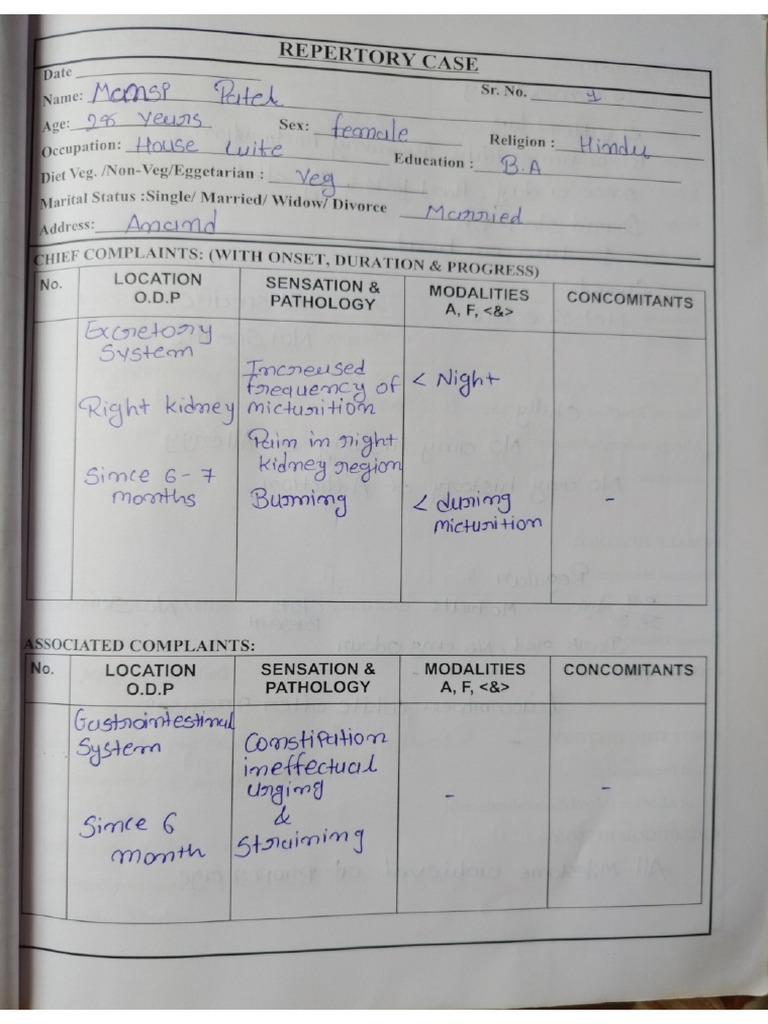 REPERTORY CASE
Date
Name: Mcmsp Patel Sr. No. 1
Age: 28 years Sex: female
Occupation: House wife Education : B.A Religion : Hindu
Diet Veg. /Non-Veg/Eggetarian : Veg
Marital Status :Single/ Married/ Widow/ Divorce Married
Address: Anand
CHIEF COMPLAINTS: (WITH ONSET, DURATION & PROGRESS)
No. LOCATION O.D.P SENSATION & PATHOLOGY MODALITIES A, F, <&> CONCOMITANTS
Excretory
System
Increased
frequency of < Night
Right kidney micturition
Pain in right
kidney region
Since 6-7
months Burning < during -
micturition
ASSOCIATED COMPLAINTS:
No. LOCATION O.D.P SENSATION & PATHOLOGY MODALITIES A, F, <&> CONCOMITANTS
Gastrointestinal
System Constipation
ineffectual
urging - -
Since 6 &
month Straining